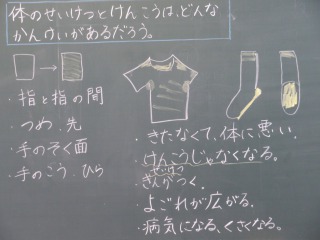 体のせいけつとけんこうは、どんな
かんけいがあるだろう。
・指と指の間
・つめ、先
・手のそく面
・手のこう、ひら
・きたなくて、体に悪い。
・けんこうじゃなくなる。
きんがつく。
・よごれが広がる。
・病気になる、くさくなる。